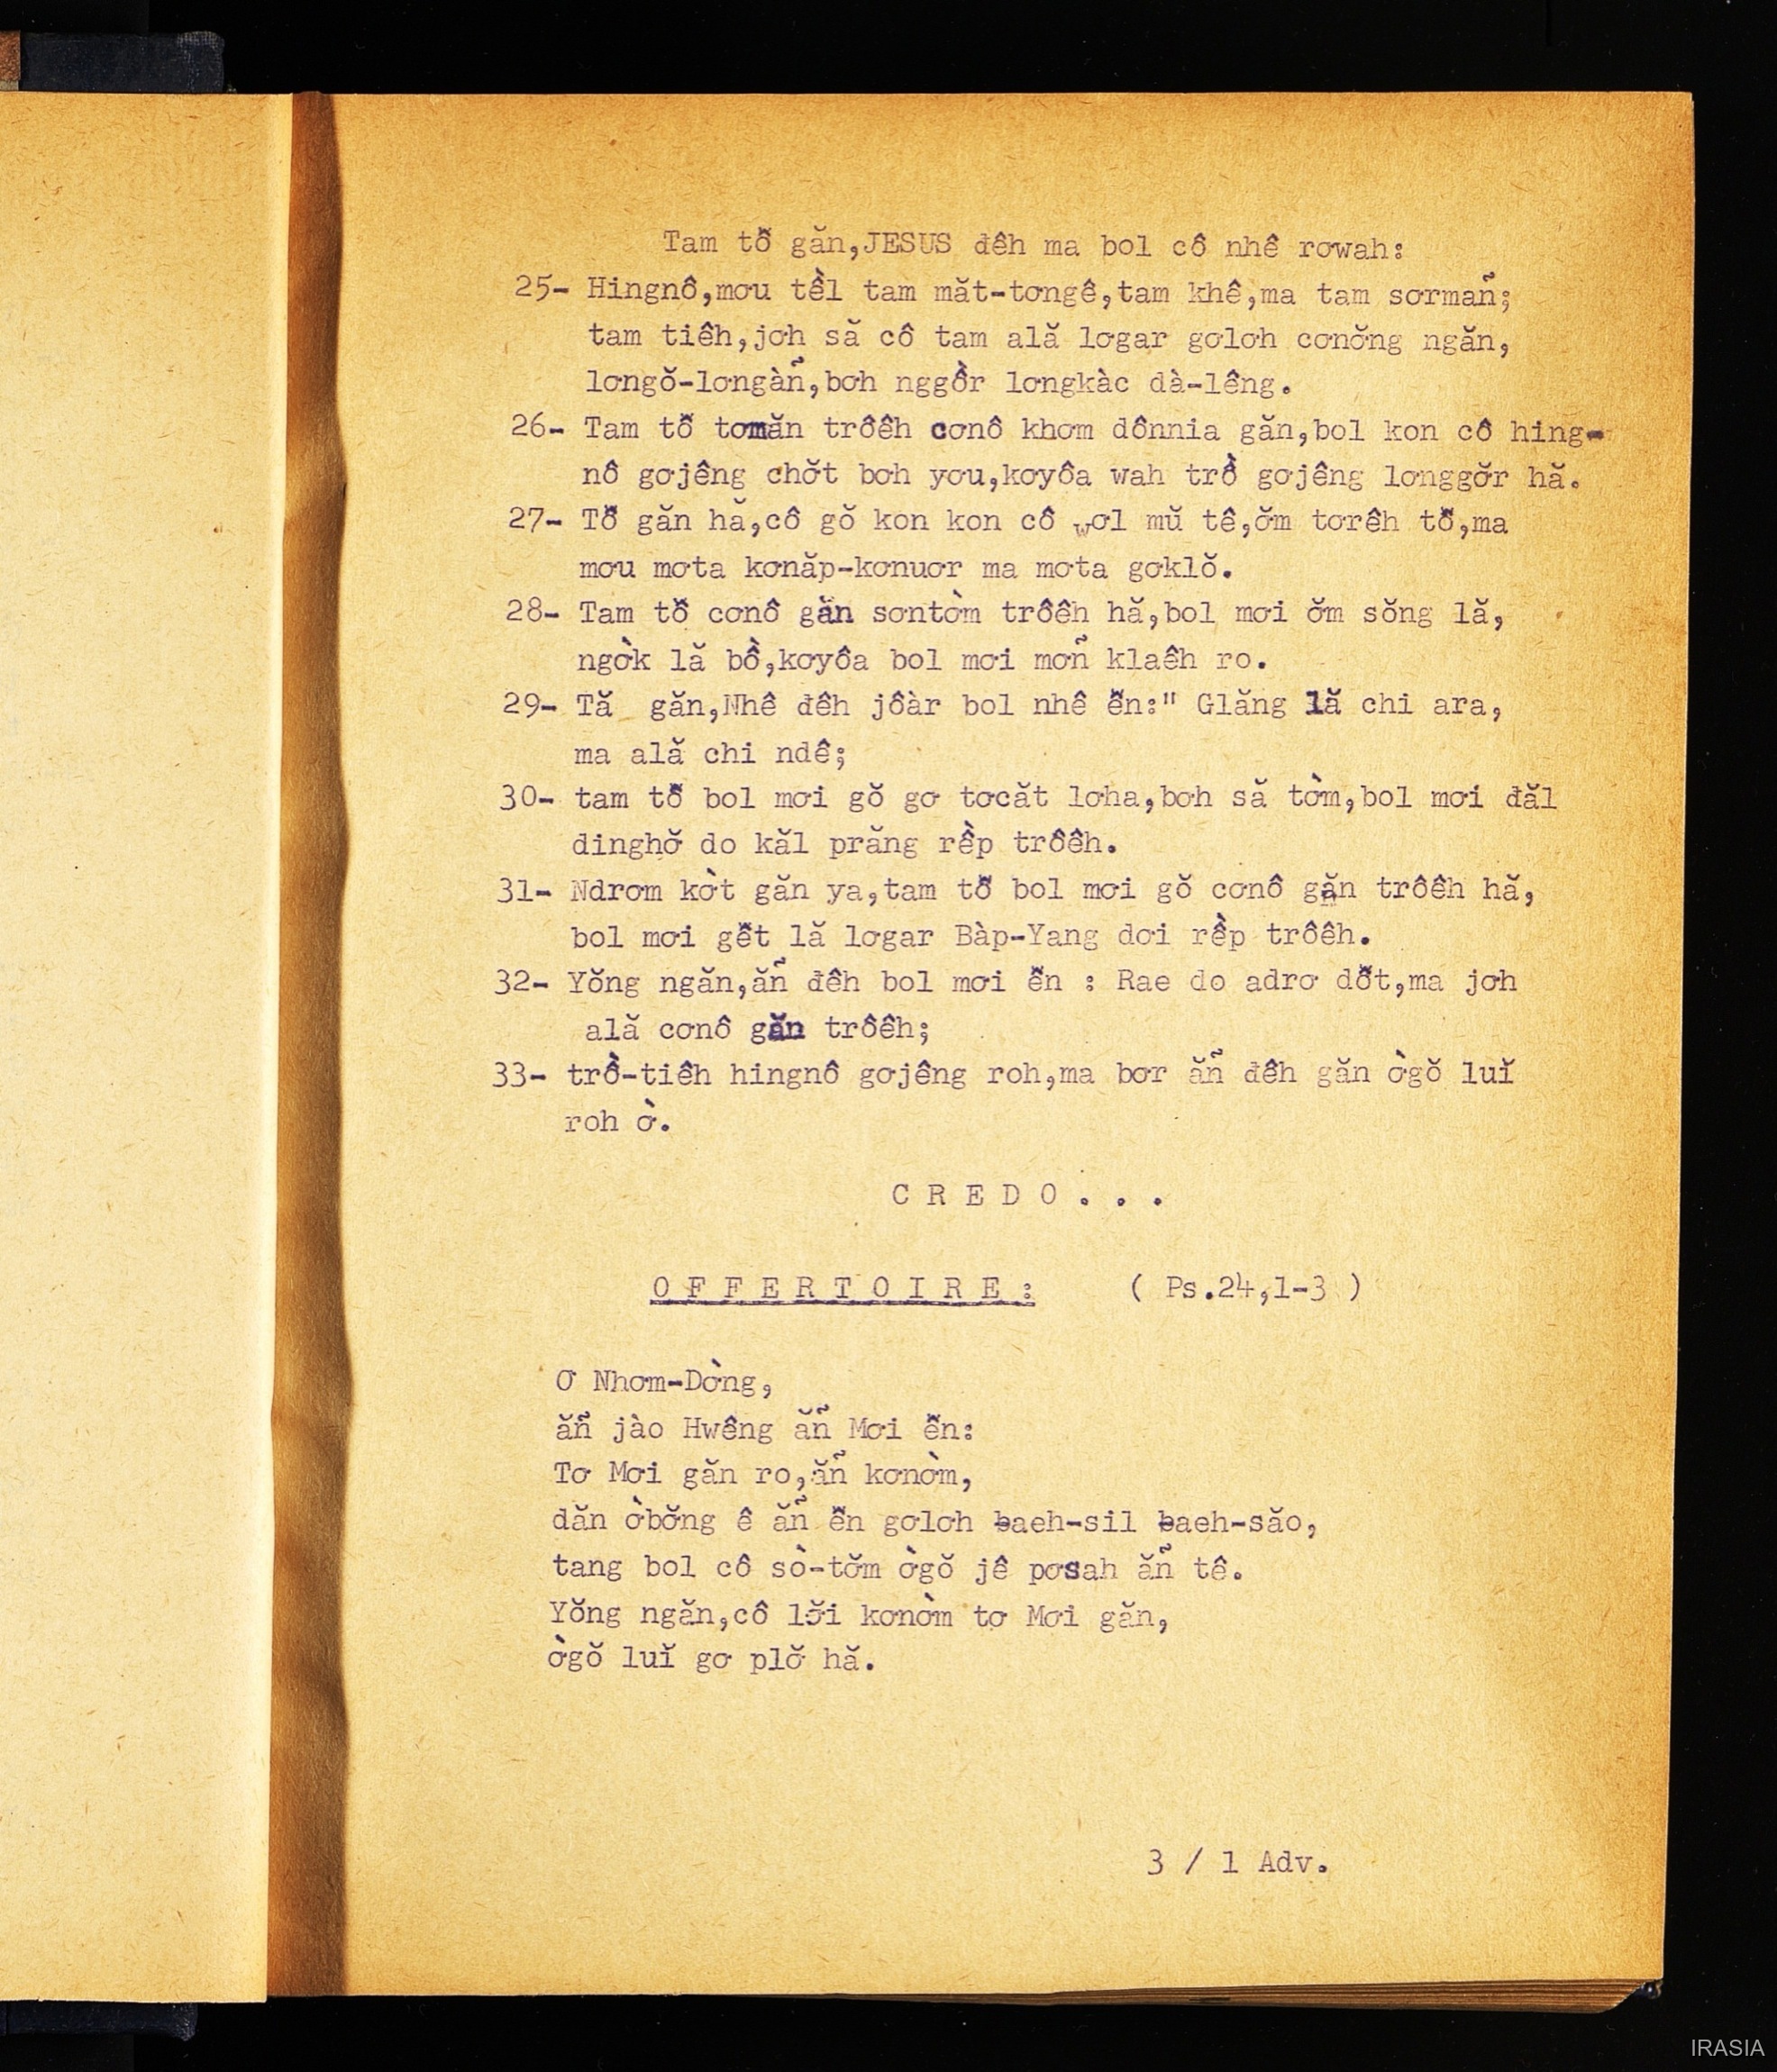 Tam tô̆ găn,JESUS đêh ma bol cô nhê rơwah:
25- Hingnô,mơu tềl tam măt-tơngê,tam khê,ma tam sơrmañ;
tam tiêh,jơh să cô tam ală lơgar gơlơh cơnơ̆ng ngăn,
lơngŏ-lơngàñ,bơh nggồr lơngkàc dà-lêng.
26- Tam tô̆ tơmăn trôêh cơnô khơm dônnia găn,bol kon cô hing-
nô gơjêng chơ̆t bơh yơu,kơyôa wah trồ gơjêng lơnggơ̆r hă.
27- Tô̆ găn hă,cô gŏ kon kon cô wơl mŭ tê,ơ̆m tơrêh tô̆,ma
mơu mơta kơnăp-kơnuơr ma mơta gơklŏ.
28- Tam tô̆ cơnô găn sơntờm trôêh hă,bol mơi ơ̆m sŏng lă,
ngờk lă bồ,kơyôa bol mơi mơñ klaêh ro.
29- Tă găn,Nhê đêh jôàr bol nhê ê̆n:" Glăng lă chi ara,
ma ală chi ndê;
30- tam tô̆ bol mơi gŏ gơ tơcăt lơha,bơh să tờm,bol mơi đăl
dinghơ̆ do kăl prăng rềp trôêh.
31- Ndrơm kờt găn ya,tam tô̆ bol mơi gŏ cơnô găn trôêh hă,
bol mơi gê̆t lă lơgar Bàp-Yang dơi rềp trôêh.
32- Yŏng ngăn,ăñ đêh bol mơi ê̆n : Rae do adrơ dô̆t,ma jơh
ală cơnô găn trôêh;
33- trồ-tiêh hingnô gơjêng roh,ma bơr ăñ đêh găn ờgŏ luĭ
roh ờ.
C R E D O . . .
O F F E R T O I R E : ( Ps.24,1-3 )
Ơ Nhơm-Dờng,
ăñ jào Hwêng ăñ Mơi ê̆n:
Tơ Mơi găn ro,ăñ kơnờm,
dăn ờbơ̆ng ê ăñ ê̆n gơlơh ƀaeh-sil ƀaeh-săo,
tang bol cô sò-tơ̆m ờgŏ jê pơsah ăñ tê.
Yŏng ngăn,cô lơ̆i kơnờm tơ Mơi găn,
ờgŏ luĭ gơ plơ̆ hă.
3 / 1 Adv.
IRASIA